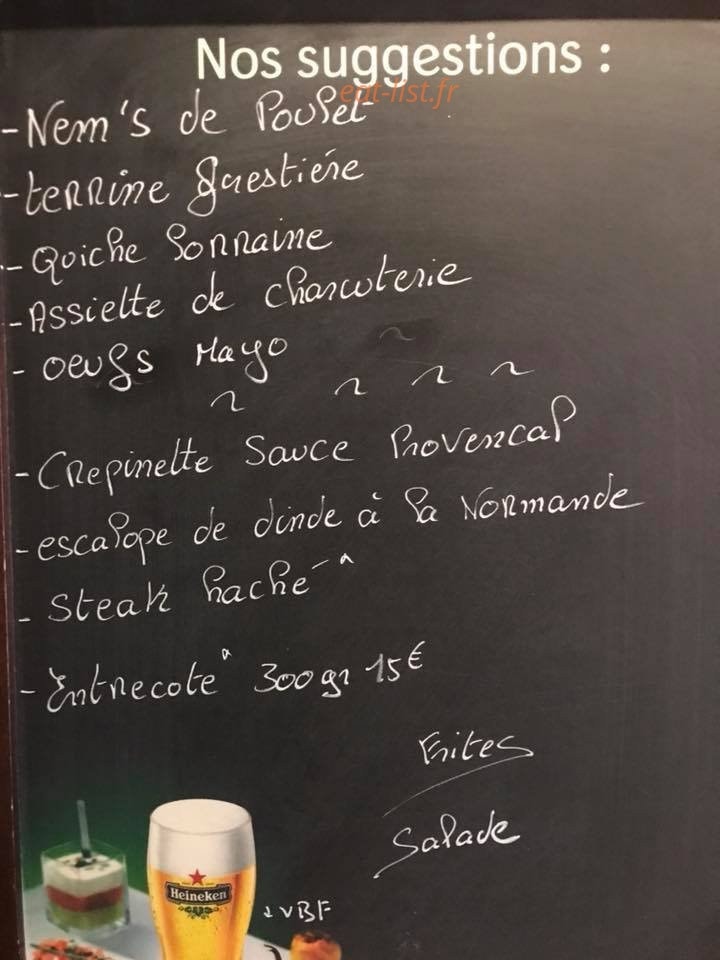 Nos suggestions :
eat-list.fr
- Nem's de Poulet
- terrine forestiére
- Quiche Lorraine
- Assiette de charcuterie
- oeufs Mayo
~ ~ ~ ~
- Crepinette Sauce Provencal
- escalope de dinde à la Normande
- Steak haché ^
- Entrecote ^ 300 gr 15€
Frites
Salade
Heineken
VBF